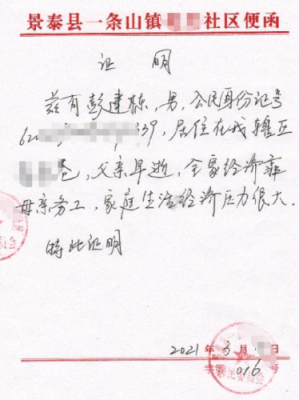 景泰县一条山镇 社区便函
证 明
兹有彭建栋,男,公民身份证号
62 339,居住在我辖区
巷,父亲早逝,全家经济靠
母亲务工,家庭生活经济压力很大.
特此证明
2021 年 3 月
016 号